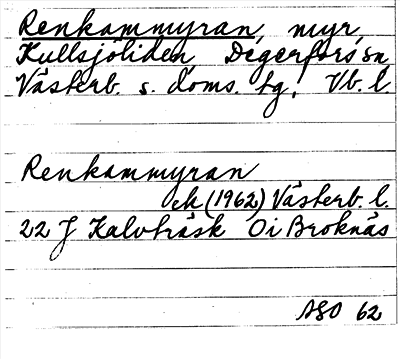 Renkammyran, myr,
Kullsjöliden, Degerfors sn,
Västerb. s. doms. tg. Vb. l.
Renkammyran
ek (1962) Västerb. l.
22 J Kalvträsk 0 i Broknäs
ASO 62